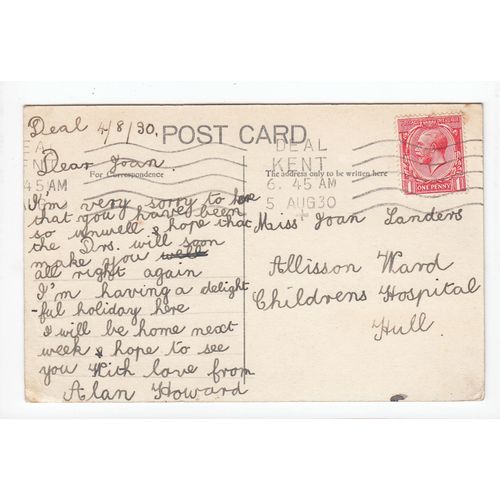 Deal 4/8/30.
POST CARD.
DEAL
KENT
6. 45 AM
5 AUG 30
EA
ENT
45 AM
For Correspondence
The address only to be written here
ONE PENNY
Dear Joan.
I'm very sorry to here
that you have been
so unwell & hope that
the Drs. will soon
make you well
all right again
I'm having a delight
-ful holiday here
I will be home next
week & hope to see
you With love from
Alan Howard
Miss Joan Landers
Allisson Ward
Childrens Hospital
Hull.